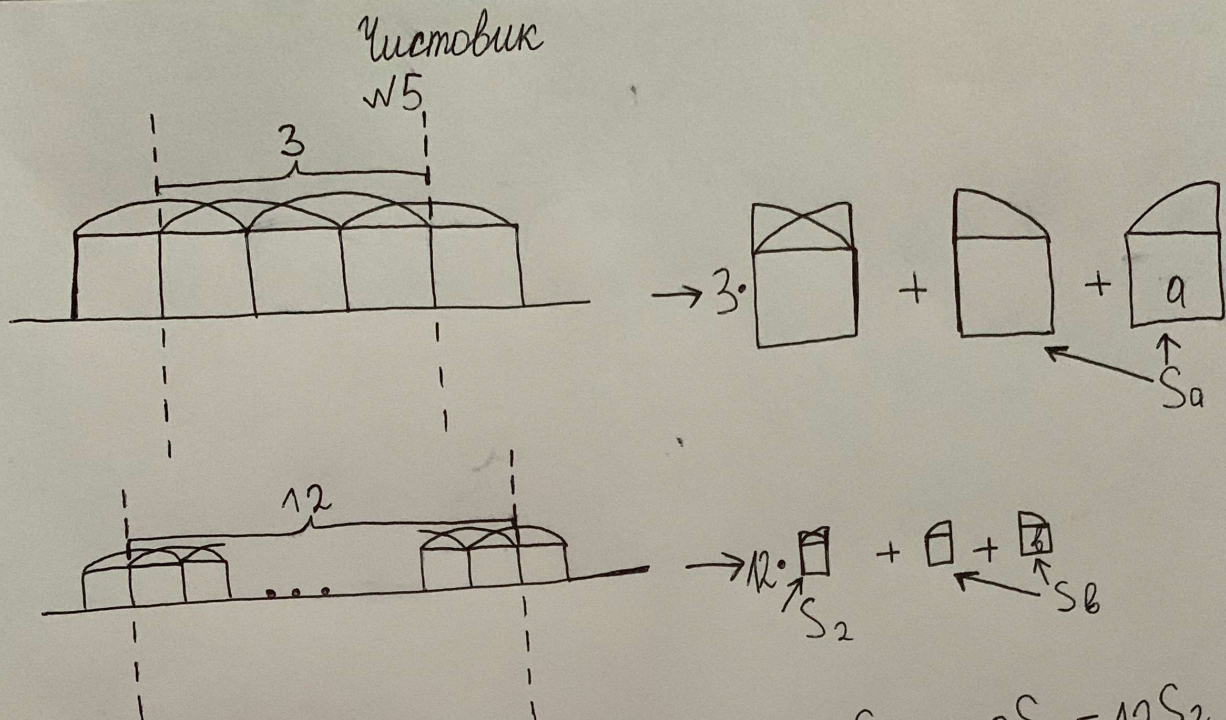 Чистовик
№5
3
→ 3· + + a
Sa
12
→ 12· + + b
S₂ Sв
= 12S₂